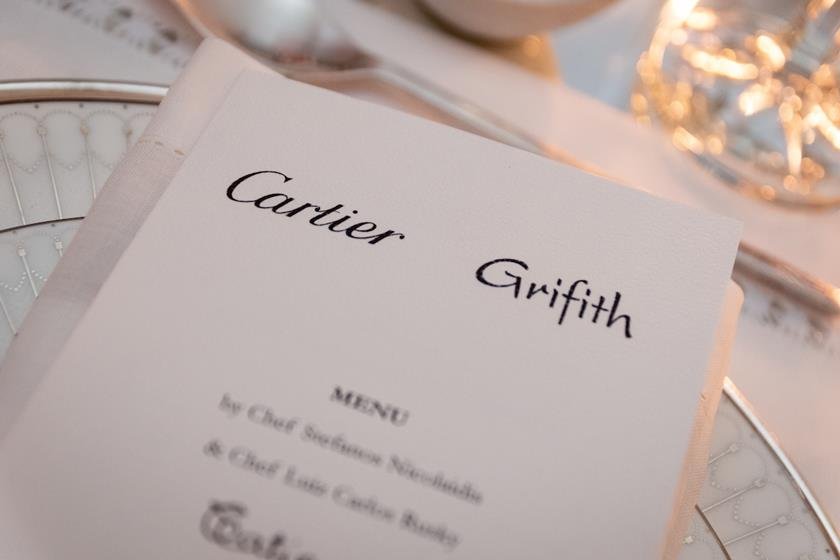 Cartier Grifith
MENU
by Chef Stefanos Nicolaidis
& Chef Luis Carlos